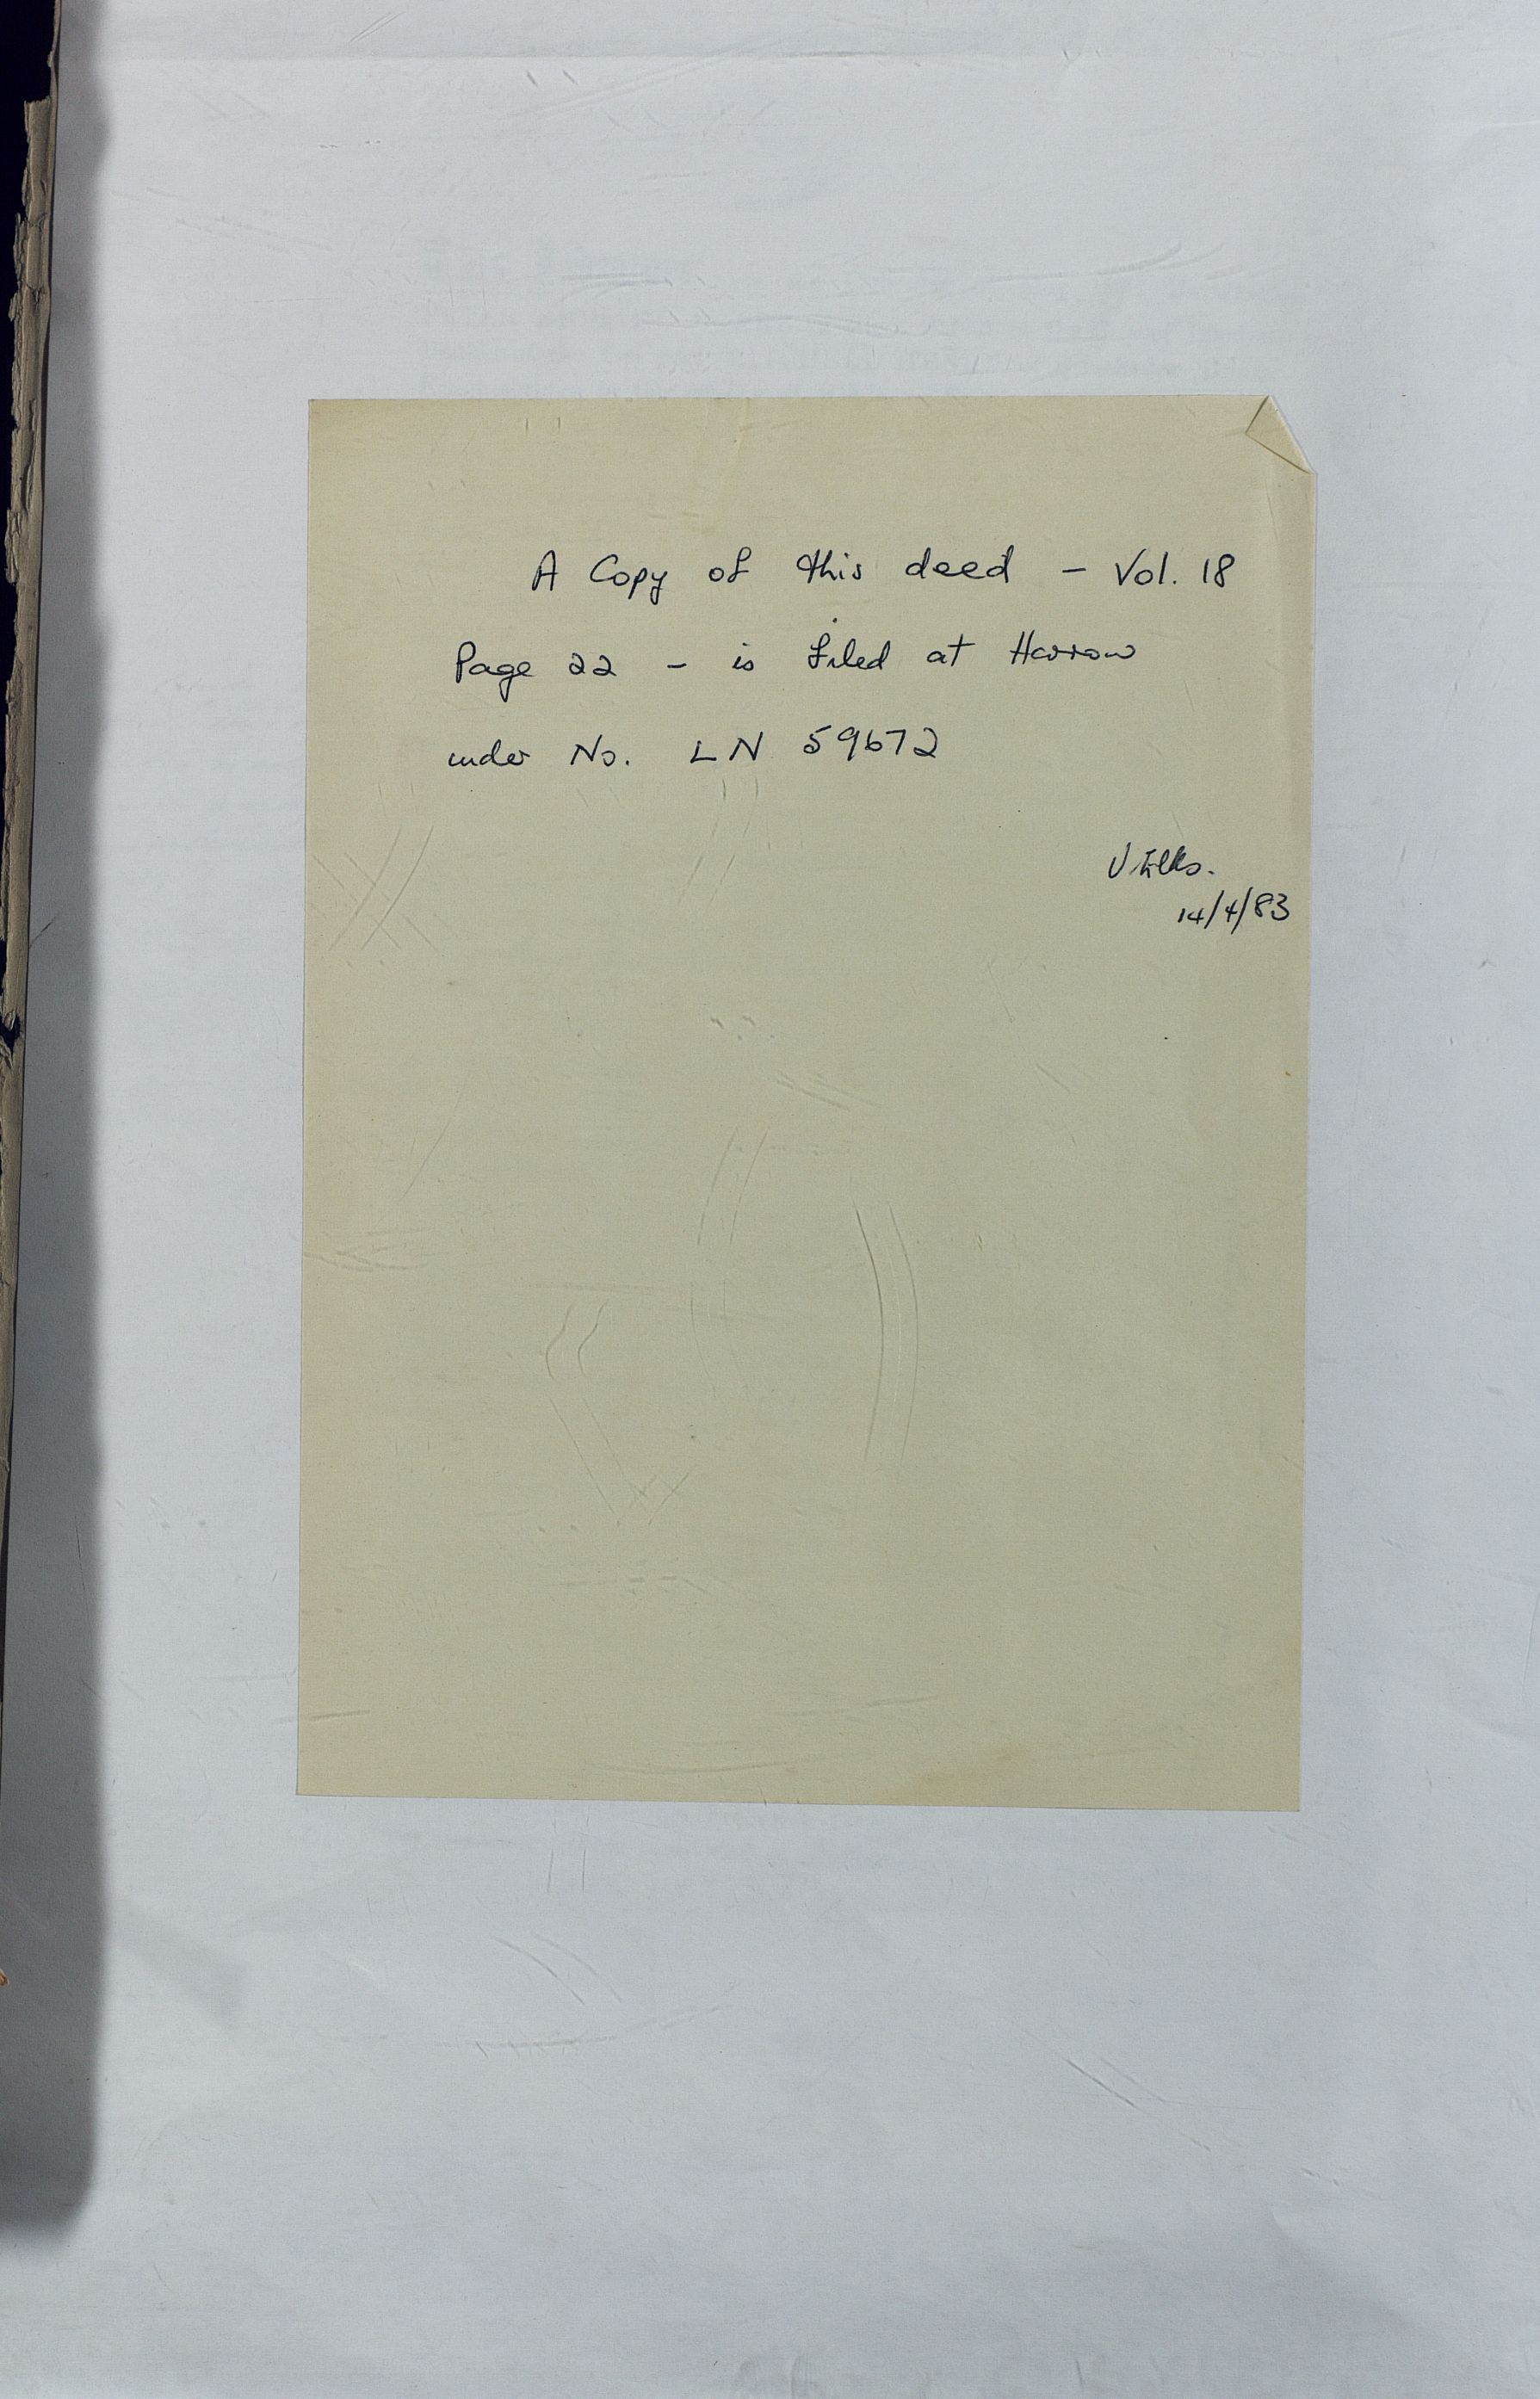 A Copy of this deed - Vol. 18
Page 22 - is filed at Harrow
under No. LN 59672
14/4/83